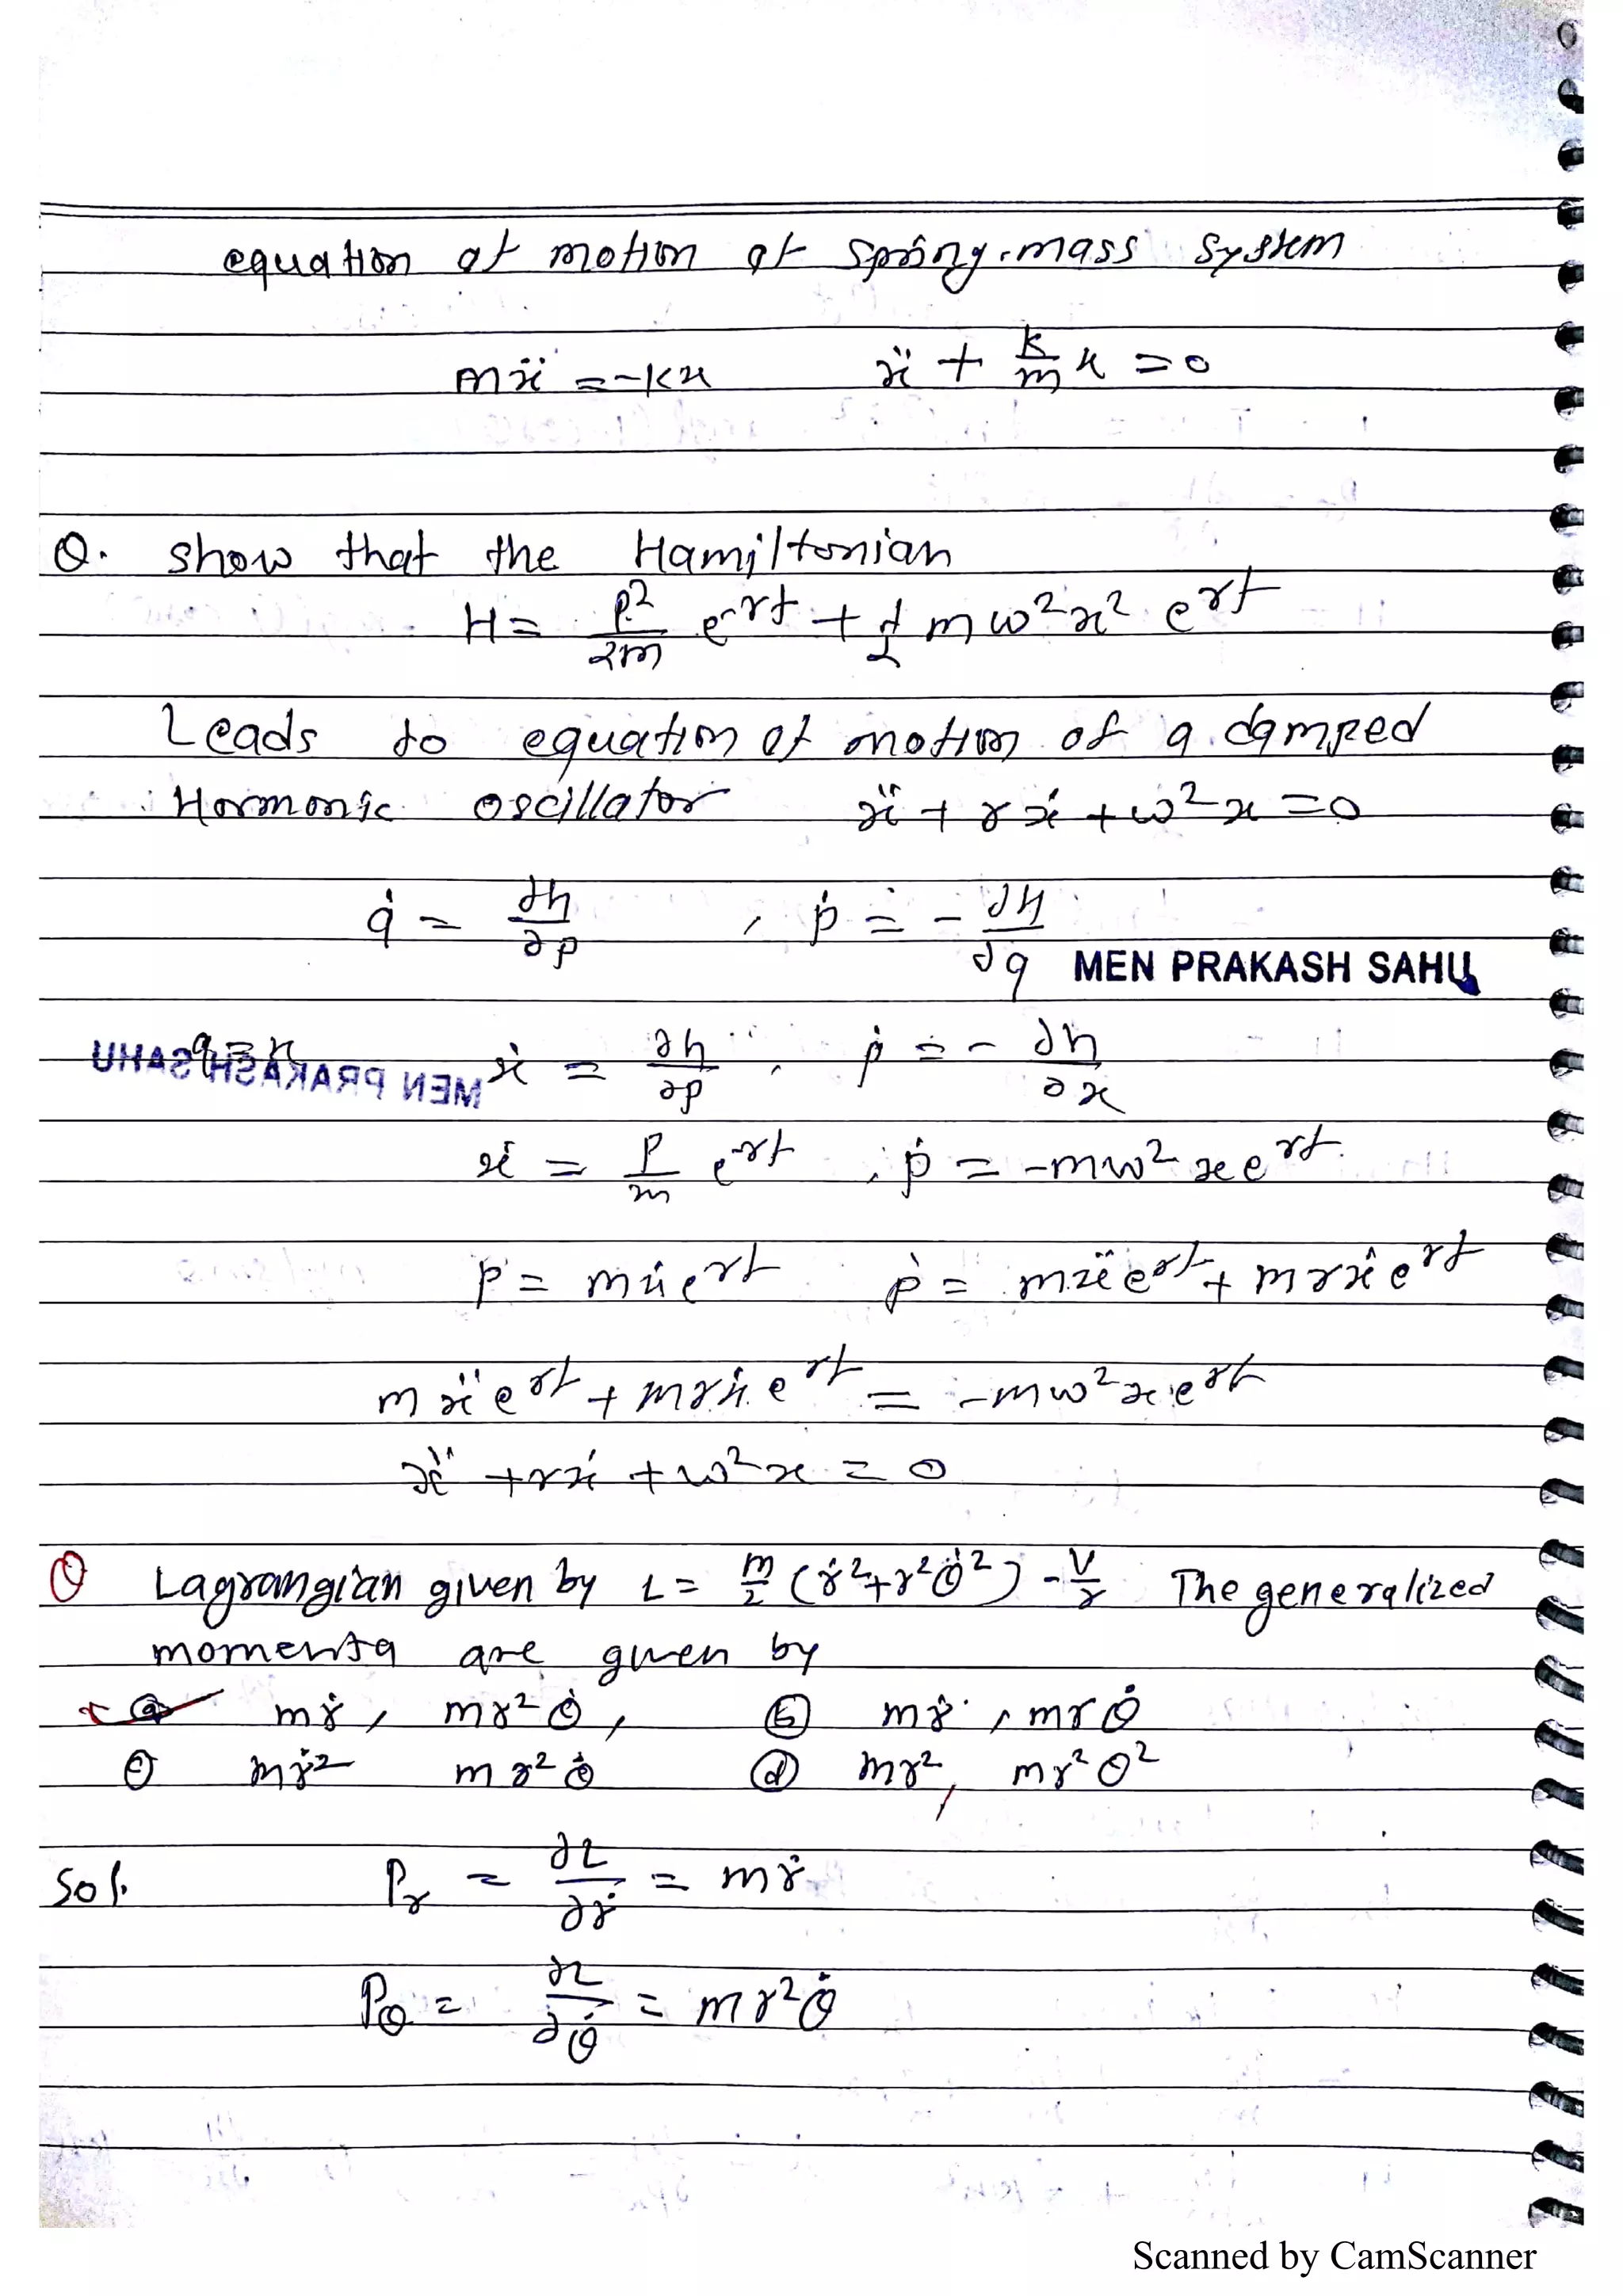 equation of motion of spring-mass system
mẍ = -kx    ẍ + k/m x = 0
Q. show that the Hamiltonian
H = p²/2m e^-γt + 1/2 mω²x² e^γt
Leads to equation of motion of a damped
Hormonic oscillator    ẍ + γẋ + ω²x = 0
q̇ = ∂h/∂p , ṗ = -∂H/∂q
MEN PRAKASH SAHU
q = x    ẋ = ∂h/∂p , ṗ = -∂h/∂x
MEN PRAKASH SAHU
ẋ = p/m e^-γt , ṗ = -mω²xe^γt
p = mẋe^γt    ṗ = mẍe^γt + mγẋe^γt
mẍe^γt + mγẋe^γt = -mω²xe^γt
ẍ + γẋ + ω²x = 0
Q Lagrangian given by L = m/2 (ṙ² + r²θ̇²) - V/r The generalized
momenta are given by
(a) mṙ, mr²θ̇, (b) mṙ, mrθ̇
(c) mṙ² mr²θ̇ (d) mr², mr²θ²
Sol. Pr = ∂L/∂ṙ = mṙ
Pθ = ∂L/∂θ̇ = mr²θ̇
Scanned by CamScanner